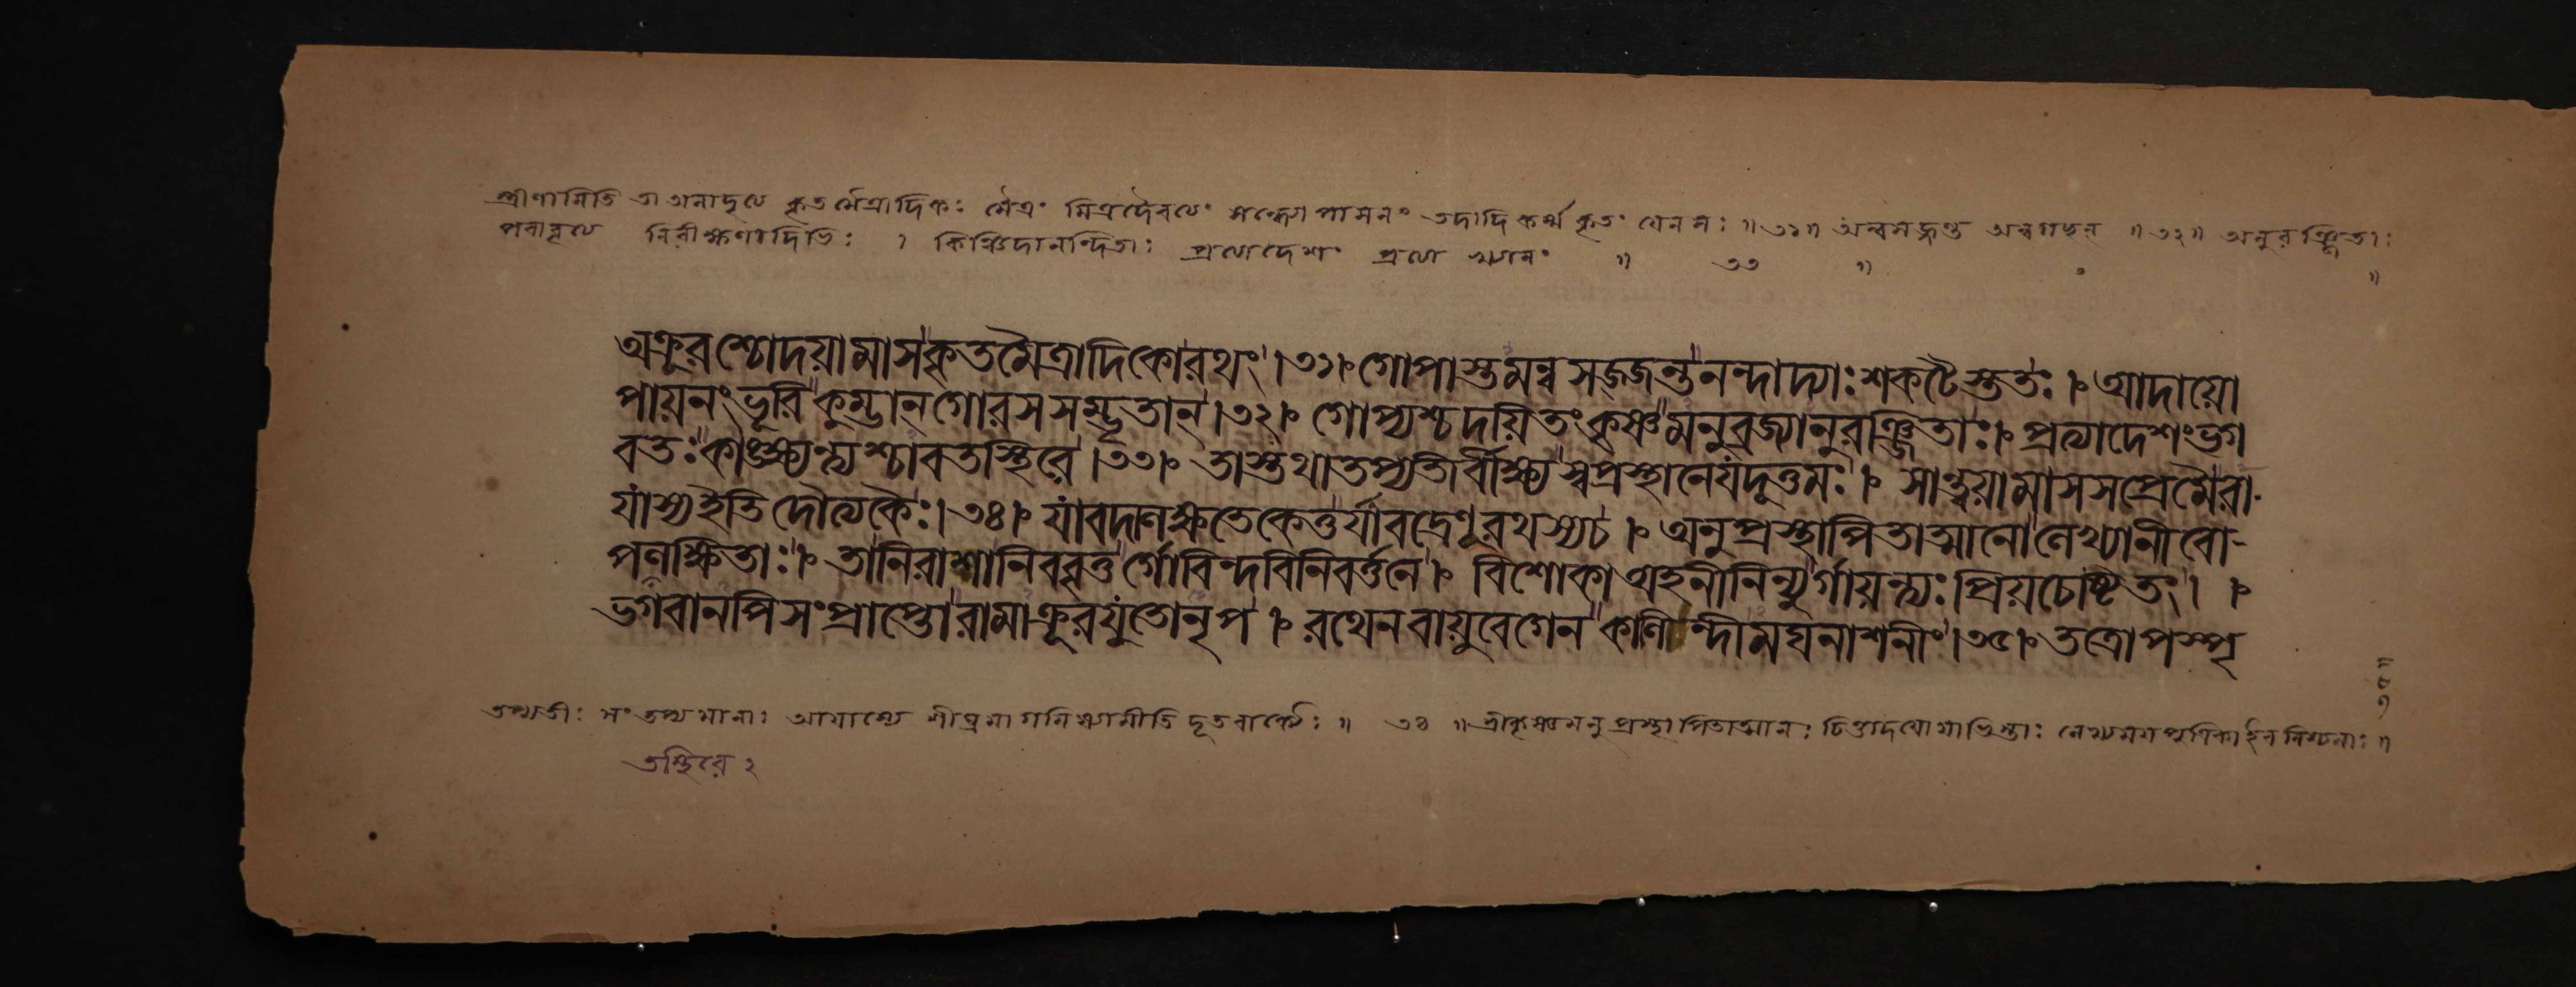 স্ত্রীণামিতি তা অনাদৃত্য কৃতমৈত্রাদিকঃ মৈত্রং মিত্রদৈবত্যং সন্ধ্যোপাসনং তদাদি কর্ম্ম কৃতং যেন সঃ ॥ ৩১ ॥ অন্বসজ্জন্ত অন্বগচ্ছন্ ॥ ৩২ ॥ অনুরঞ্জিতাঃ
পরাবৃত্য নিরীক্ষণাদিভিঃ । কিঞ্চিদানন্দিতাঃ প্রত্যাদেশং প্রত্যাখ্যানং ॥ ৩৩ ॥ ॥
অক্রূরশ্চোদয়ামাসকৃতমৈত্রাদিকোরথং।৩১। গোপাস্তমন্বসজ্জন্তনন্দাদ্যাঃশকটৈস্ততঃ। আদায়ো
পায়নংভূরিকুম্ভানগোরসসম্ভৃতান্।৩২। গোপ্যশ্চদয়িতংকৃষ্ণমনুব্রজ্যানুরঞ্জিতাঃ। প্রত্যাদেশংভগ
বতঃকাঙ্ক্ষ্যন্ত্যশ্চাবতস্থিরে।৩৩। তাস্তথাতপ্যতীর্বীক্ষ্যস্বপ্রস্থানেযদূত্তমঃ। সান্ত্বয়ামাসসপ্রেমৈরা-
যাস্যইতিদৌত্যকৈঃ।৩৪। যাবদালক্ষতেকেতুর্যাবদ্রেণূরথস্যচ। অনুপ্রস্থাপিতাত্মানোলেখ্যানীবো-
পলক্ষিতাঃ। তানিরাশানিববৃতুর্গোবিন্দবিনিবর্ত্তনে। বিশোকাঅহনীনিন্যুর্গায়ন্ত্যঃপ্রিয়চেষ্টিতং। ।
ভগবানপিসংপ্রাপ্তোরামাক্রূরযুতোনৃপ। রথেনবায়ুবেগেনকালিন্দীমঘনাশনীং।৩৫। তত্রোপস্পৃ
তপ্যতীঃ সংতপ্যমানাঃ আযাস্যে শীঘ্রমাগমিষ্যামীতি দূতবাক্যৈঃ ॥ ৩৪ ॥ শ্রীকৃষ্ণমনুপ্রস্থাপিতাত্মানঃ
তস্থিরে ২